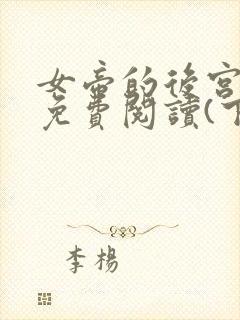 女帝的後宮
免費閱讀(下
李楊